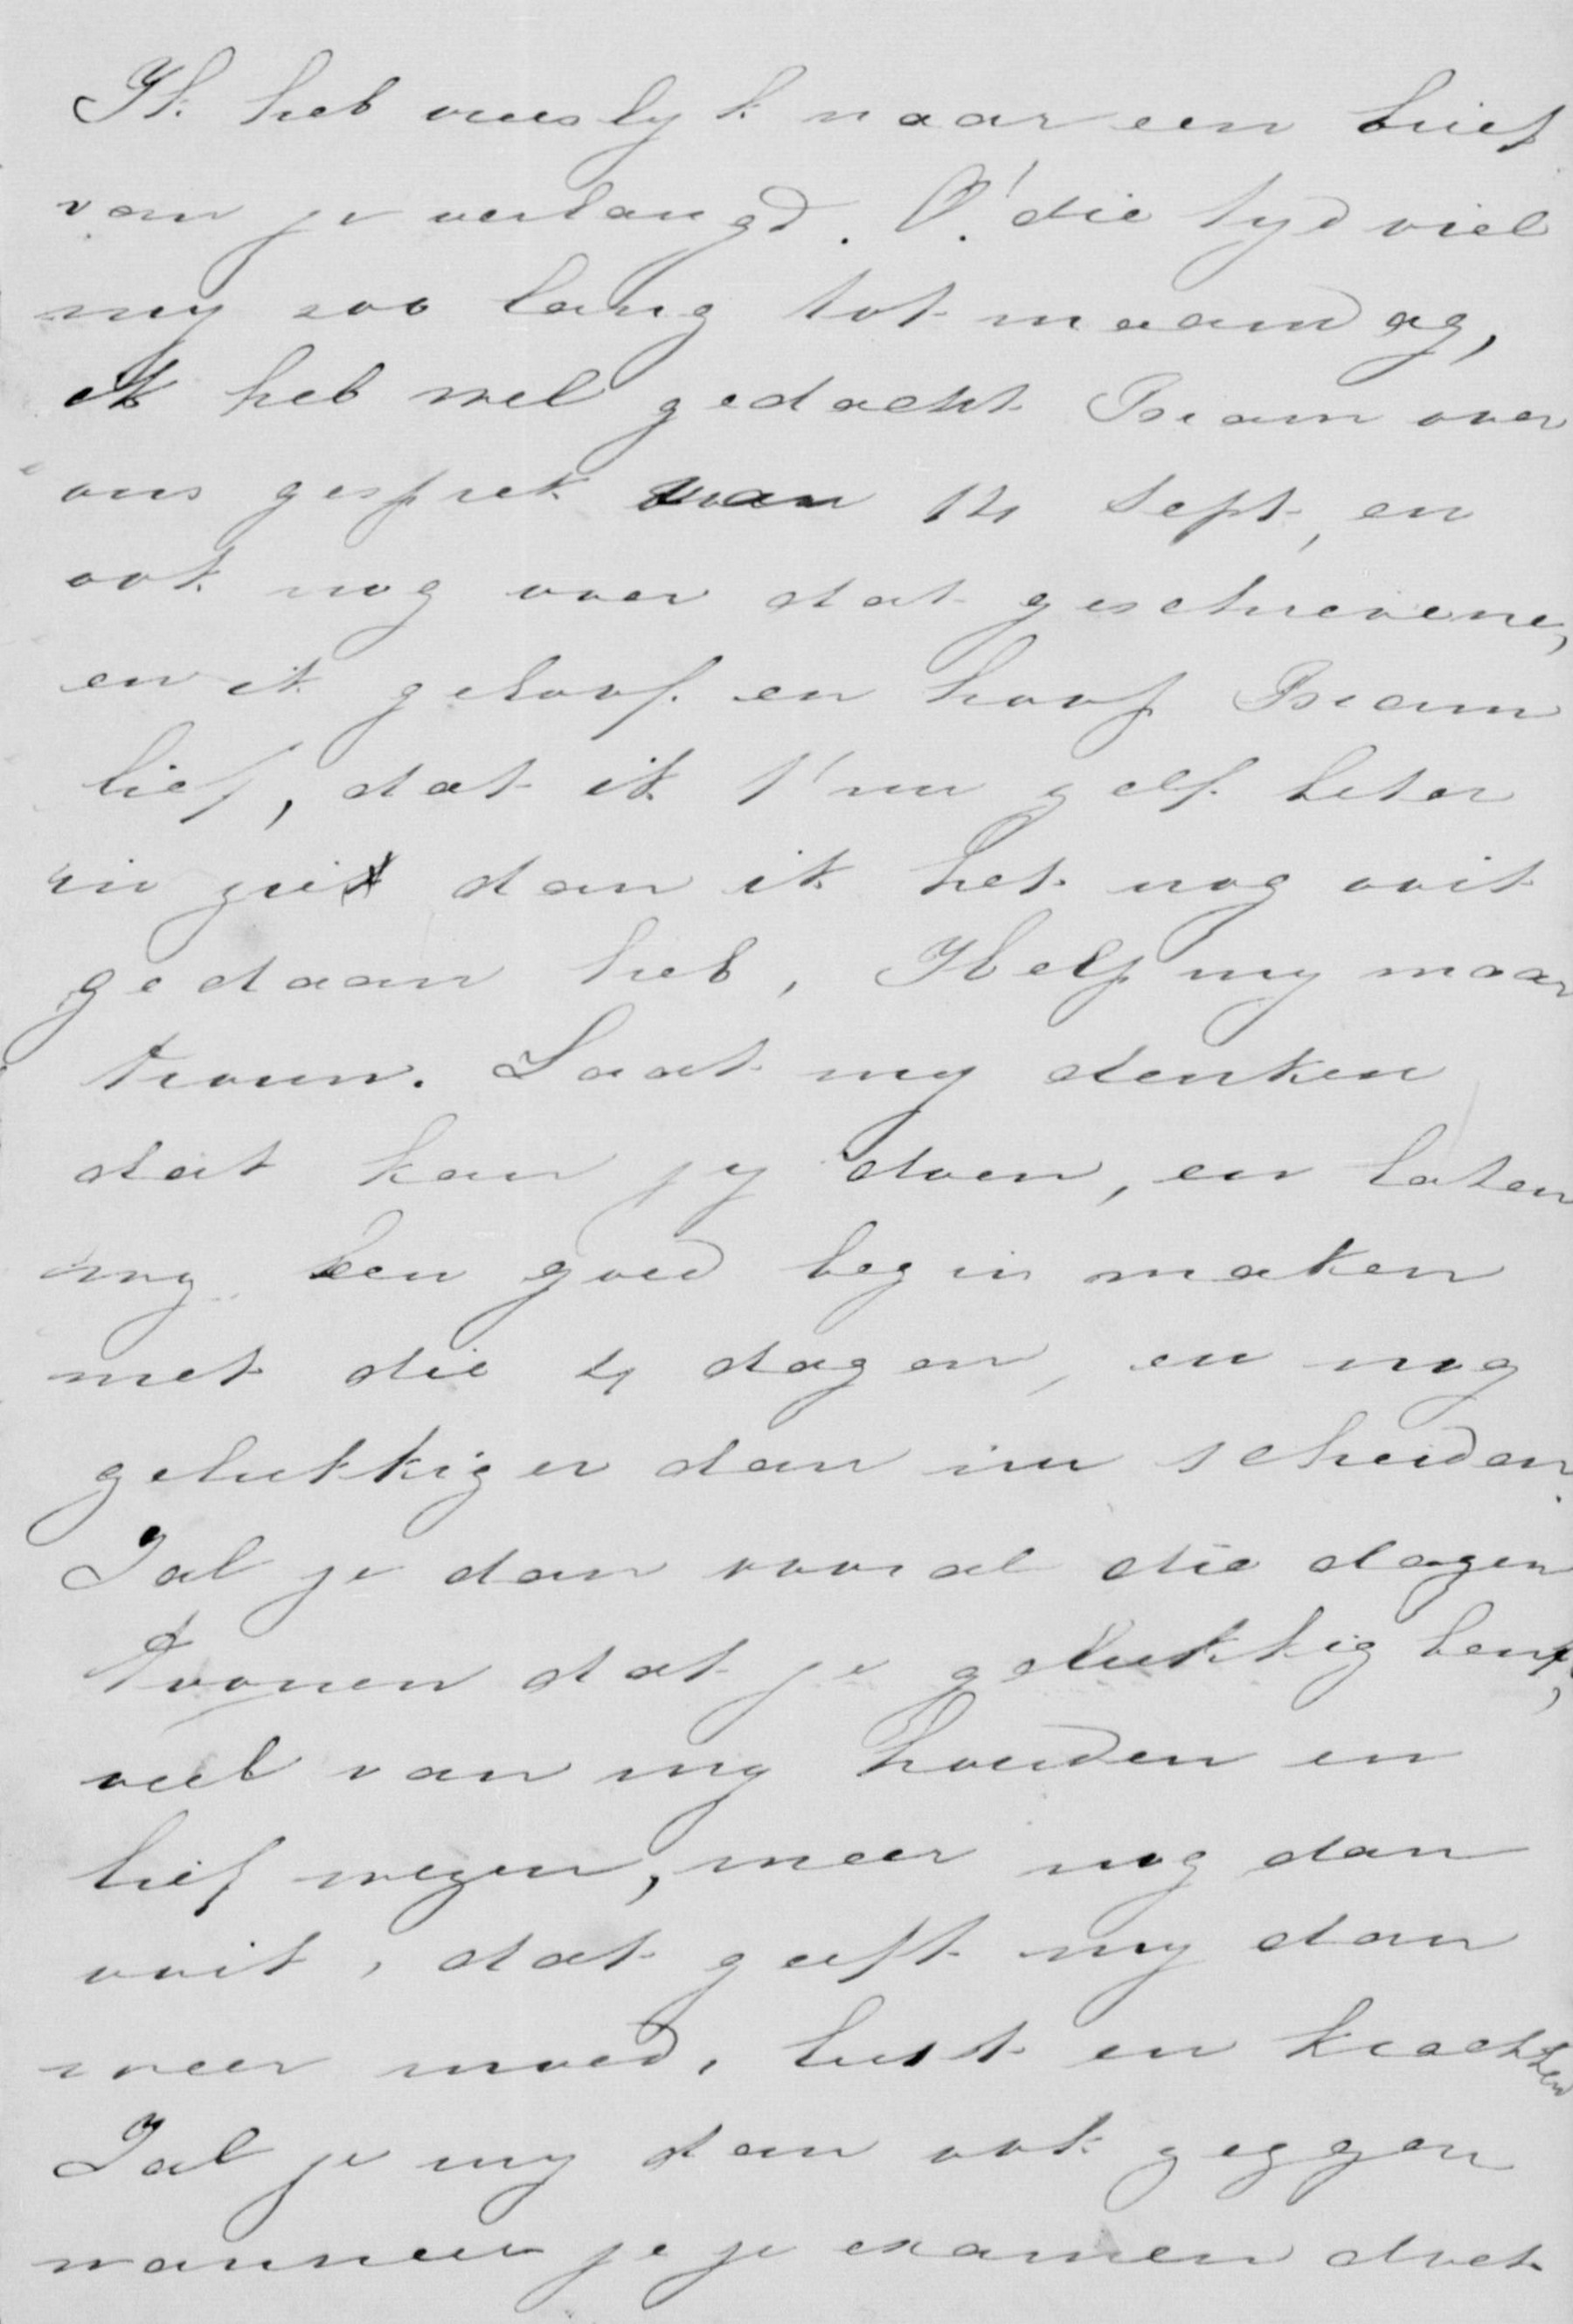 Ik heb vreeslyk naar een brief
van je verlangd. O! die tyd viel
my zoo lang tot maandag,
ik heb wel gedacht Bram over
ons gesprek van 14 Sept, en
ook nog over dat geschrevene,
en ik geloof en hoop Bram
lief, dat ik 't nu zelf beter
in ziet dan ik het nog ooit
gedaan heb, Help my maar
trouw. Laat my denken
dat kan jy doen, en laten
wy een goed begin maken
met die 4 dagen, en nog
gelukkiger dan nu scheiden.
Zal je dan vooral die dagen
toonen dat je gelukkig bent,
veel van my houden en
lief wezen, meer nog dan
ooit, dat geeft my dan
weer moed, lust en krachten
Zal je my dan ook zeggen
wanneer je je examen doet